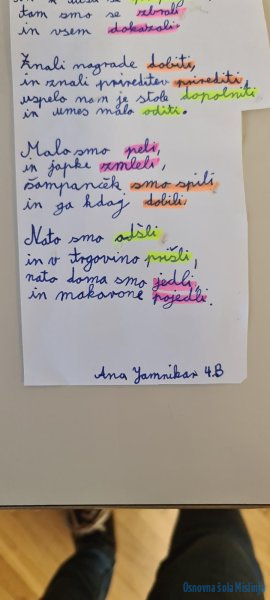 tam smo se zbrali
in vsem dokazali.
Znali nagrade dobiti,
in znali prireditev prirediti,
uspelo nam je stole dopolniti
in umes malo oditi.
Malo smo peli,
in japke zmleli,
šampanček smo spili
in ga kdaj dobili.
Nato smo odšli
in v trgovino prišli,
nato doma smo jedli,
in makarone pojedli.
Ana Jamnikar 4.B
Osnovna šola Mislinja